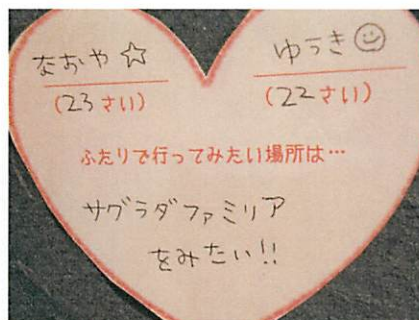 なおや☆
ゆうき☺
(23さい)
(22さい)
ふたりで行ってみたい場所は…
サグラダファミリア
をみたい!!